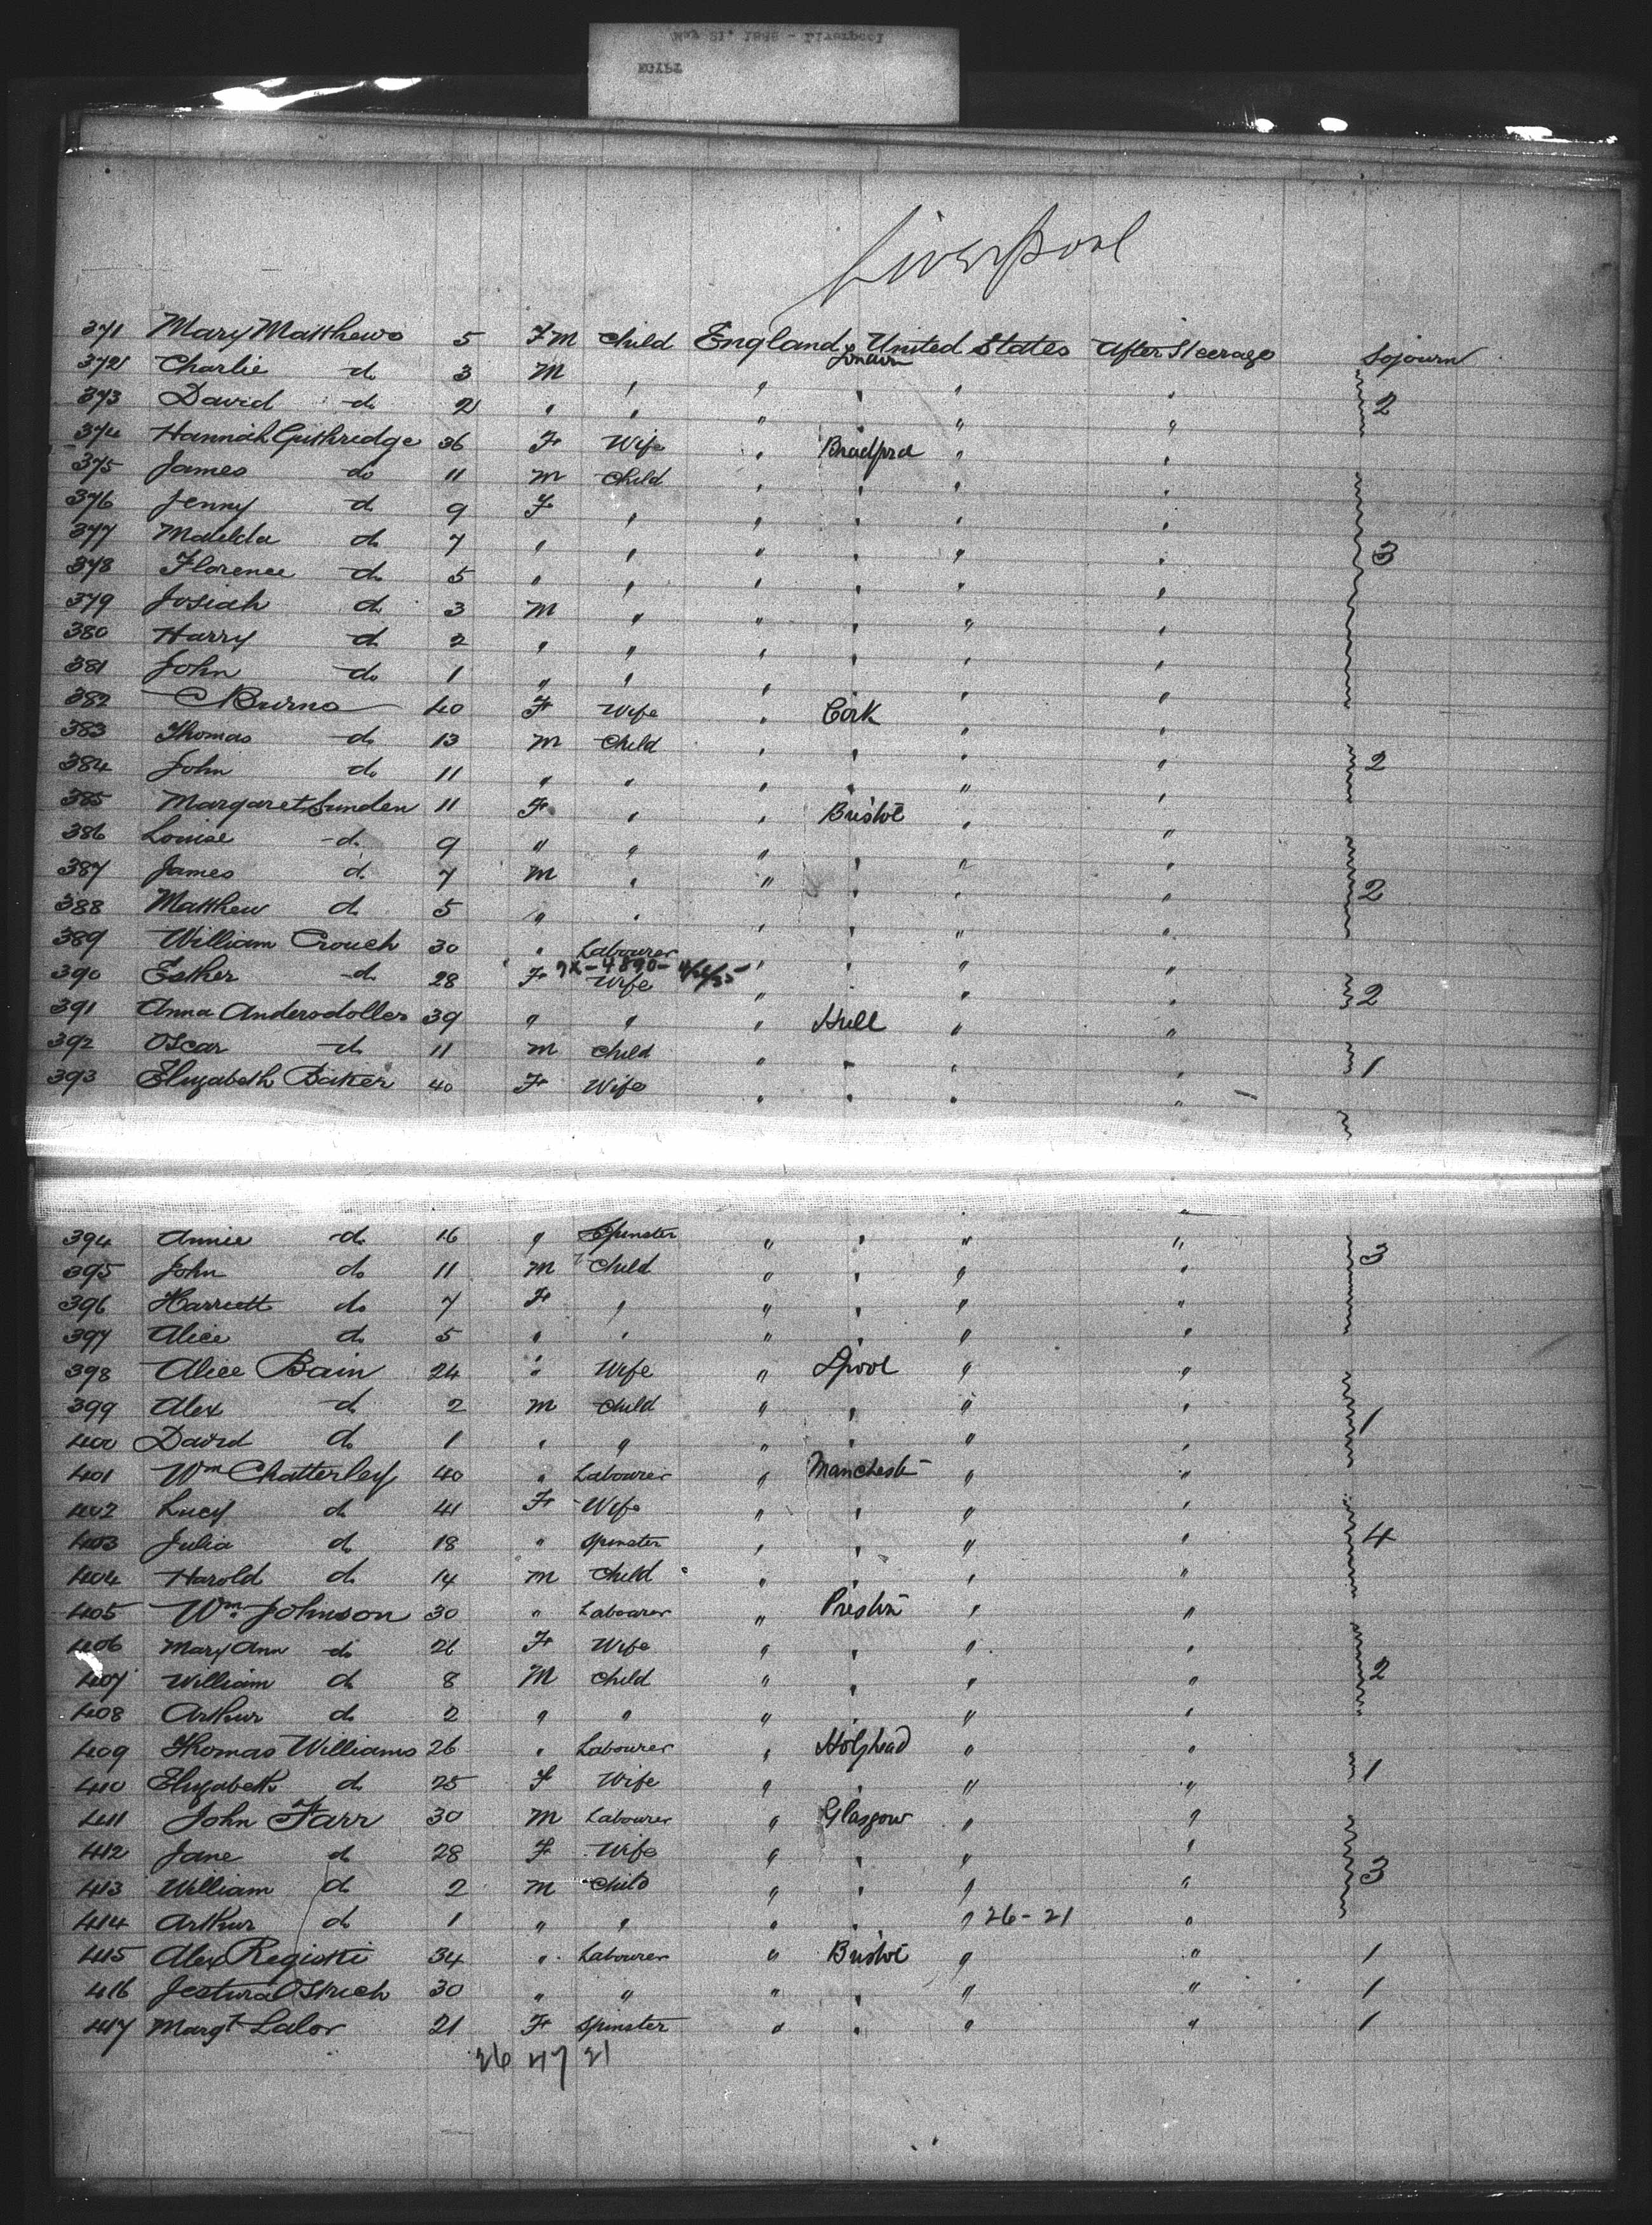 May 21, 1888 - Liverpool
EGYPT
Liverpool
371 Mary Matthews 5 F M Child England London United States After Steerage Sojourn
372 Charlie do 3 M " " " " "
373 David do 2 " " " " " " 2
374 Hannah Guthridge 36 F Wife " Bradford " "
375 James do 11 M Child " " " "
376 Jenny do 9 F " " " " "
377 Matilda do 7 " " " " " " 3
378 Florence do 5 " " " " " "
379 Josiah do 3 M " " " " "
380 Harry do 2 " " " " " "
381 John do 1 " " " " " "
382 C Burns 40 F Wife " Cork " "
383 Thomas do 13 M Child " " " "
384 John do 11 " " " " " " 2
385 Margaret Lunden 11 F " " Bristol " "
386 Louise do 9 " " " " " "
387 James do 7 M " " " " "
388 Matthew do 5 " " " " " " 2
389 William Crouch 30 " Labourer " " " "
7X-4890-
390 Esther do 28 F Wife " " " " 2
391 Anna Andersdoller 39 " " " Hull " "
392 Oscar do 11 M Child " " " " 1
393 Elizabeth Baker 40 F Wife " " " "
394 Annie do 16 " Spinster " " " "
395 John do 11 M Child " " " " 3
396 Harriett do 7 F " " " " "
397 Alice do 5 " " " " " "
398 Alice Bain 24 " Wife " Lpool " "
399 Alex do 2 M Child " " " " 1
400 David do 1 " " " " " "
401 Wm Chatterley 40 " Labourer " Manchestr " "
402 Lucy do 41 F Wife " " " "
403 Julia do 18 " Spinster " " " " 4
404 Harold do 14 M Child " " " "
405 Wm Johnson 30 " Labourer " Preston " "
406 Mary Ann do 26 F Wife " " " "
407 William do 8 M Child " " " " 2
408 Arthur do 2 " " " " " "
409 Thomas Williams 26 " Labourer " Holyhead " "
410 Elizabeth do 25 F Wife " " " " 1
411 John Farr 30 M Labourer " Glasgow " "
412 Jane do 28 F Wife " " " "
413 William do 2 M Child " " " " 3
414 Arthur do 1 " " " " " 26-21 "
415 Alex Regiski 34 " Labourer " Bristol " " 1
416 30 " " " " " " 1
417 Margt Lalor 21 F Spinster " " " " 1
26 47 21